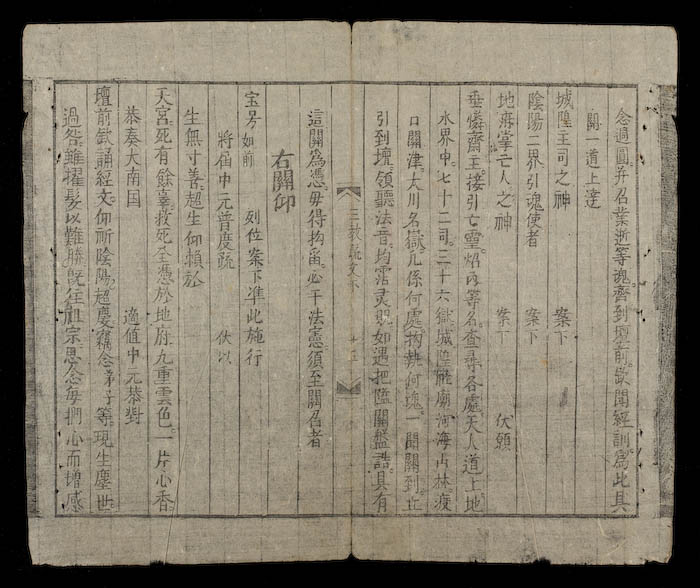 念過圓。并召葉逝等魂。齊到壇前。欽聞經訓。為此具
關一道上達
城隍主司之神 案下
陰陽二界引魂使者 案下
地府掌亡人之神 案下 伏願
垂憐齋主。接引亡靈。焰内等名。查尋各處。天人道上。地
水界中。七十二司。三十六獄。城隍廰廟。河海山林。渡
口關津。大川名嶽。凡係何處。拘執何魂。一聞關到。立
引到壇。領聽法音。均霑灵貺。如遇把隘關盤詰。具有
三教疏文下 十五
這關為憑。毋得拘留。必干法憲。須至關召者
右關仰
宝号 如前 列位案下準此施行
將畨中元普度疏 伏以
生無寸善。超生仰頼於
天宮。死有餘辜。救死全憑於地府。九重雲色。一片心香。
恭奏大南国 適值中元。恭對
壇前。欽誦經文。仰祈陰陽。超慶。竊念弟子等。現生塵世。
過咎雖擢髮以難勝。既往祖宗。恩念每捫心而增感